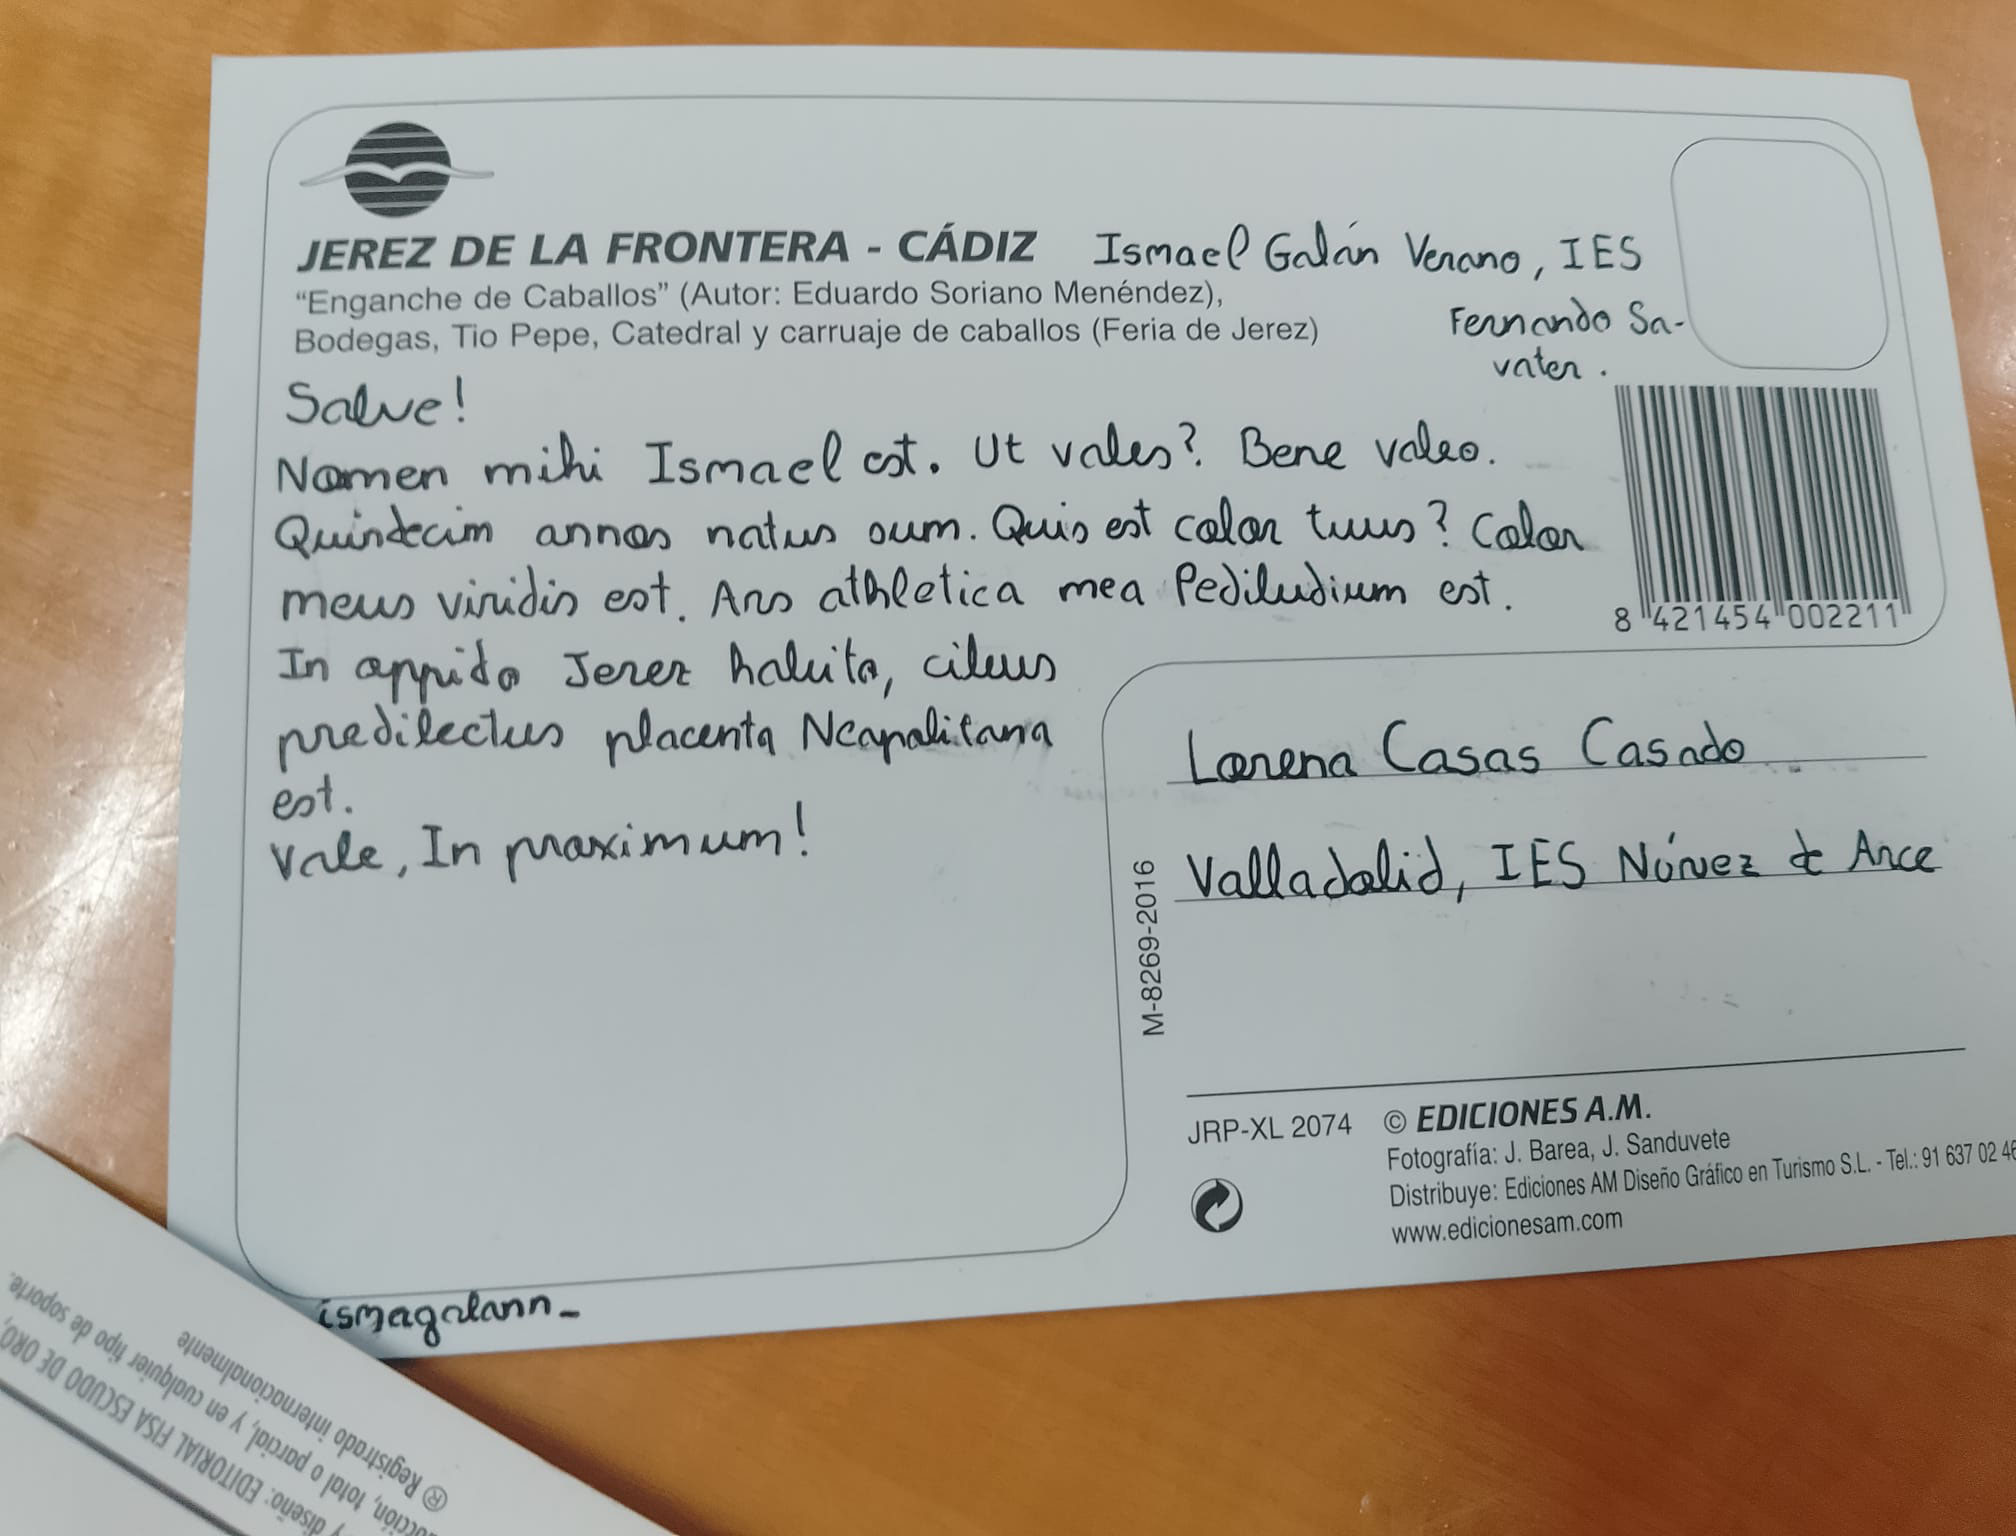 JEREZ DE LA FRONTERA - CÁDIZ Ismael Galán Verano, IES
"Enganche de Caballos" (Autor: Eduardo Soriano Menéndez),
Fernando Sa-
Bodegas, Tio Pepe, Catedral y carruaje de caballos (Feria de Jerez)
vater.
Salve!
Nomen mihi Ismael est. Ut vales? Bene valeo.
Quindecim annos natus sum. Quis est color tuus? Color
meus viridis est. Ars athletica mea Pediludium est.
8 421454 002211
In oppido Jerez habito, cibus
predilectus placenta Neapolitana
est.
Vale, In maximum!
Lorena Casas Casado
Valladolid, IES Núñez de Arce
M-8269-2016
JRP-XL 2074 © EDICIONES A.M.
Fotografía: J. Barea, J. Sanduvete
Distribuye: Ediciones AM Diseño Gráfico en Turismo S.L. - Tel.: 91 637 02 46
www.edicionesam.com
ismagalann_
® Registrado internacionalmente
total o parcial, y en cualquier tipo de soporte.
y diseño: EDITORIAL FISA ESCUDO DE ORO,